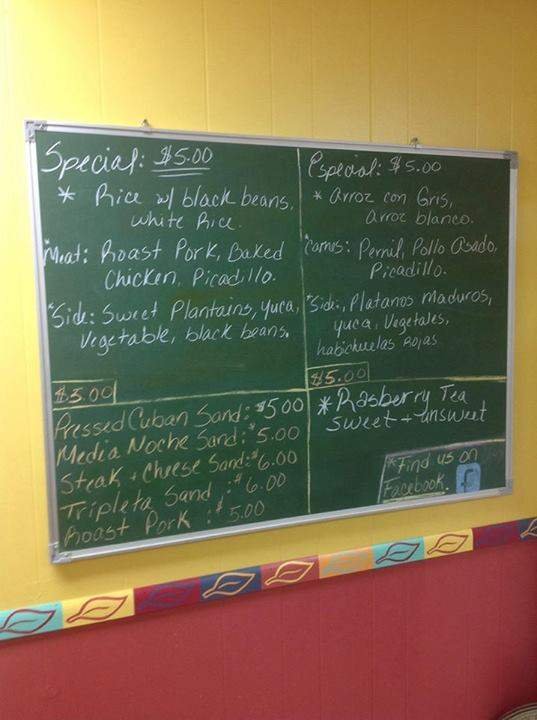 Special: $5.00
* Rice w/ black beans,
white Rice.
*Meat: Roast Pork, Baked
Chicken, Picadillo.
*Side: Sweet Plantains, yuca,
Vegetable, black beans.
$5.00
Especial: $5.00
* arroz con Gris,
arroz blanco.
Carnes: Pernil, Pollo asado,
Picadillo.
*Side:, Platanos maduros,
yuca, Vegetales,
habichuelas Rojas
$5.00
Pressed Cuban Sand: $5.00
Media Noche Sand: $5.00
Steak + Cheese Sand: $6.00
Tripleta Sand : $6.00
Roast Pork : $5.00
* Rasberry Tea
Sweet + unsweet
*Find us on
Facebook. f